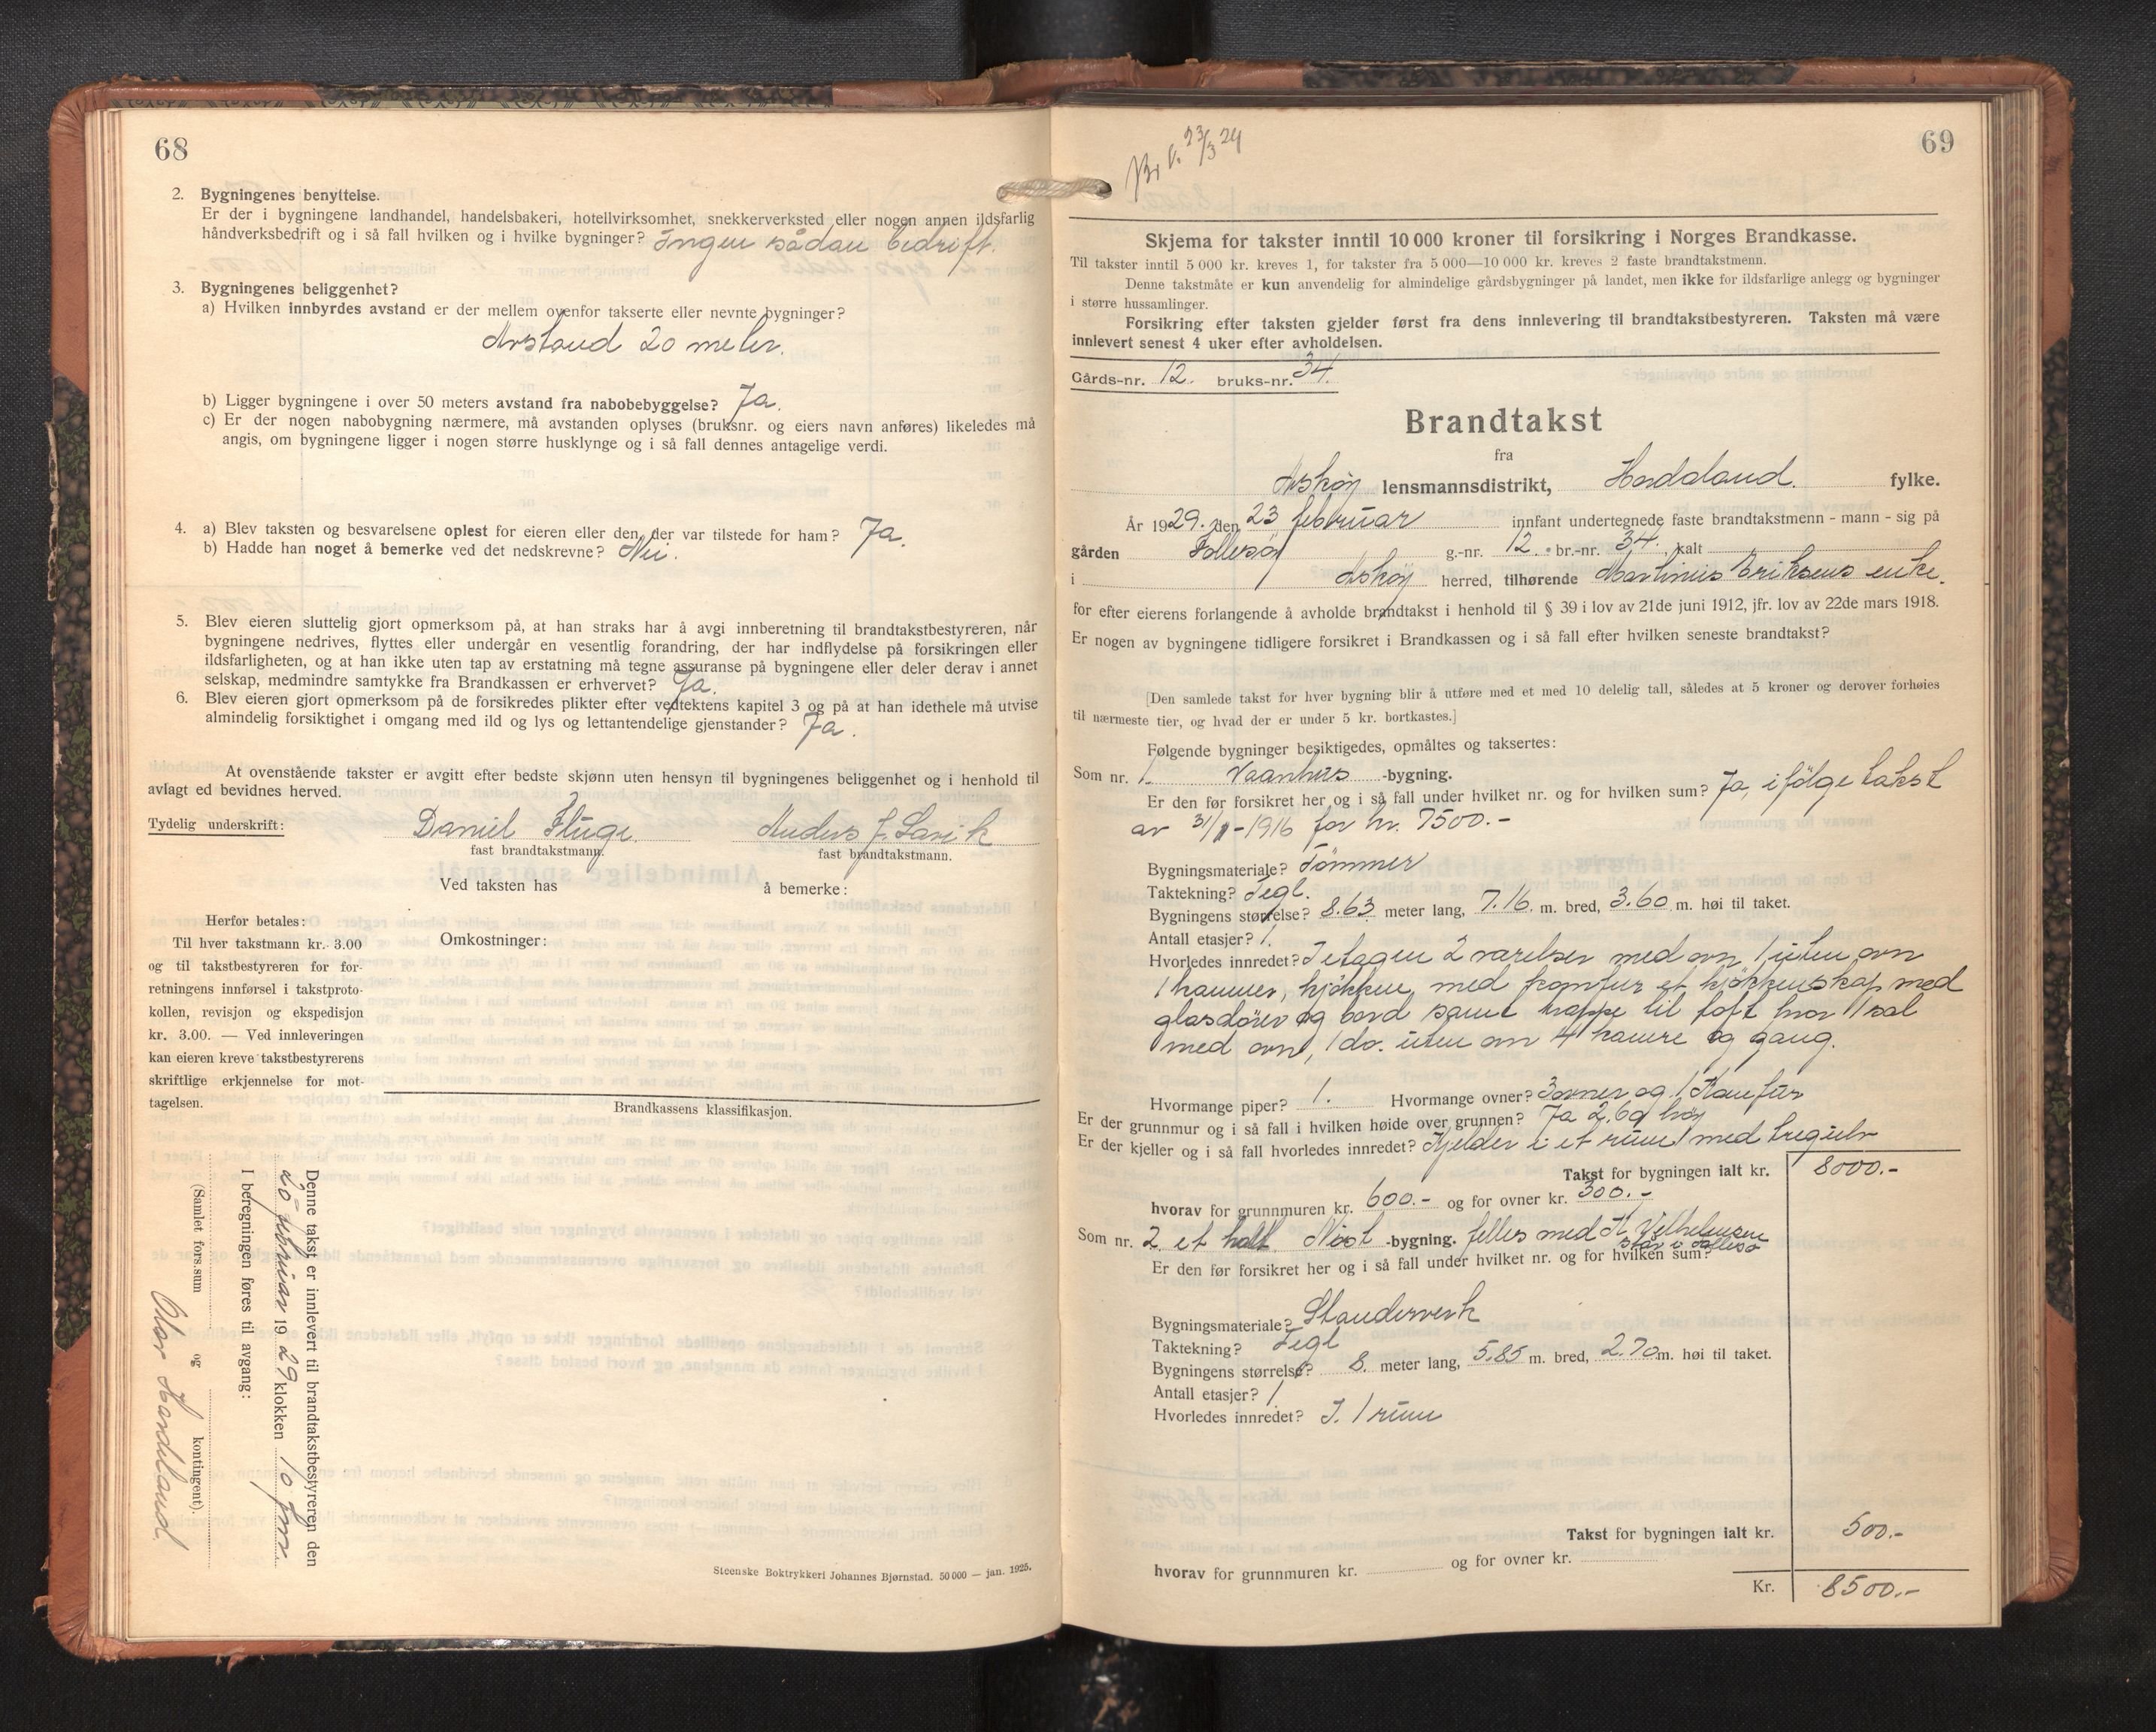 68
2. Bygningenes benyttelse.
Er der i bygningene landhandel, handelsbakeri, hotellvirksomhet, snekkerverksted eller nogen annen ildsfarlig
håndverksbedrift og i så fall hvilken og i hvilke bygninger? Ingen sådan bedrift.
3. Bygningenes beliggenhet?
a) Hvilken innbyrdes avstand er der mellem ovenfor takserte eller nevnte bygninger?
Avstand 20 meter.
b) Ligger bygningene i over 50 meters avstand fra nabobebyggelse? Ja.
c) Er der nogen nabobygning nærmere, må avstanden oplyses (bruksnr. og eiers navn anføres) likeledes må
angis, om bygningene ligger i nogen større husklynge og i så fall dennes antagelige verdi.
4. a) Blev taksten og besvarelsene oplest for eieren eller den, der var tilstede for ham? Ja.
b) Hadde han noget å bemerke ved det nedskrevne? Nei.
5. Blev eieren sluttelig gjort opmerksom på, at han straks har å avgi innberetning til brandtakstbestyreren, når
bygningene nedrives, flyttes eller undergår en vesentlig forandring, der har indflydelse på forsikringen eller
ildsfarligheten, og at han ikke uten tap av erstatning må tegne assuranse på bygningene eller deler derav i annet
selskap, medmindre samtykke fra Brandkassen er erhvervet? Ja.
6. Blev eieren gjort opmerksom på de forsikredes plikter efter vedtektens kapitel 3 og på at han idethele må utvise
almindelig forsiktighet i omgang med ild og lys og lettantendelige gjenstander? Ja.
At ovenstående takster er avgitt efter bedste skjønn uten hensyn til bygningenes beliggenhet og i henhold til
avlagt ed bevidnes herved.
Tydelig underskrift: Daniel Fluge. Anders J. Lavik
fast brandtakstmann. fast brandtakstmann.
Ved taksten has å bemerke:
Herfor betales:
Til hver takstmann kr. 3.00
og til takstbestyreren for for-
retningens innførsel i takstproto-
kollen, revisjon og ekspedisjon
kr. 3.00. — Ved innleveringen
kan eieren kreve takstbestyrerens
skriftlige erkjennelse for mot-
tagelsen.
Omkostninger:
Brandkassens klassifikasjon.
Denne takst er innlevert til brandtakstbestyreren den
25 februar 1929 klokken 10 fm.
I beregningen føres til avgang:
(Samlet fors.sum og kontingent).
Olav Handeland
Steenske Boktrykkeri Johannes Bjørnstad. 50 000 — jan. 1925.
69
23/3 29
Skjema for takster inntil 10 000 kroner til forsikring i Norges Brandkasse.
Til takster inntil 5 000 kr. kreves 1, for takster fra 5 000—10 000 kr. kreves 2 faste brandtakstmenn.
Denne takstmåte er kun anvendelig for almindelige gårdsbygninger på landet, men ikke for ildsfarlige anlegg og bygninger
i større hussamlinger.
Forsikring efter taksten gjelder først fra dens innlevering til brandtakstbestyreren. Taksten må være
innlevert senest 4 uker efter avholdelsen.
Gårds-nr. 12. bruks-nr. 34.
Brandtakst
fra
Askøy lensmannsdistrikt, Hordaland. fylke.
År 1929. den 23 februar innfant undertegnede faste brandtakstmenn - mann - sig på
gården Follesöy g.-nr. 12. br.-nr. 34., kalt
i Askøy herred, tilhørende Martinus Eriksens enke.
for efter eierens forlangende å avholde brandtakst i henhold til § 39 i lov av 21de juni 1912, jfr. lov av 22de mars 1918.
Er nogen av bygningene tidligere forsikret i Brandkassen og i så fall efter hvilken seneste brandtakst?
[Den samlede takst for hver bygning blir å utføre med et med 10 delelig tall, således at 5 kroner og derover forhøies
til nærmeste tier, og hvad der er under 5 kr. bortkastes.]
Følgende bygninger besiktigedes, opmåltes og taksertes:
Som nr. 1. Vaanhus -bygning.
Er den før forsikret her og i så fall under hvilket nr. og for hvilken sum? Ja, ifölge takst
av 31/1-1916 for kr. 7500.-
Bygningsmateriale? Tömmer
Taktekning? Tegl.
Bygningens størrelse? 8.63 meter lang, 7.16. m. bred, 3.60 m. høi til taket.
Antall etasjer? 1.
Hvorledes innredet? I etagen 2 værelser med ovn 1 uten ovn
1 kammer, kjökken med komfur et kjökkenskap med
glasdörer og bord samt trappe til loft hvor 1 sal
med ovn, 1 do. uten ovn 4 kamre og gang.
Hvormange piper? 1. Hvormange ovner? 3 ovner og 1 Komfur
Er der grunnmur og i så fall i hvilken høide over grunnen? Ja 2.60 høy
Er der kjeller og i så fall hvorledes innredet? Kjelder i et rum med tregulv
Takst for bygningen ialt kr. 8000.-
hvorav for grunnmuren kr. 600.- og for ovner kr. 300.-
Som nr. 2 et halt Nöst -bygning. felles med K. Vilhelmsen
står i Follesö
Er den før forsikret her og i så fall under hvilket nr. og for hvilken sum?
Bygningsmateriale? Standerverk
Taktekning? Tegl
Bygningens størrelse? 8. meter lang, 5.85 m. bred, 2.70 m. høi til taket.
Antall etasjer? 1.
Hvorledes innredet? I. 1 rum
Takst for bygningen ialt kr. 500.-
hvorav for grunnmuren kr. og for ovner kr.
Kr. 8500.-